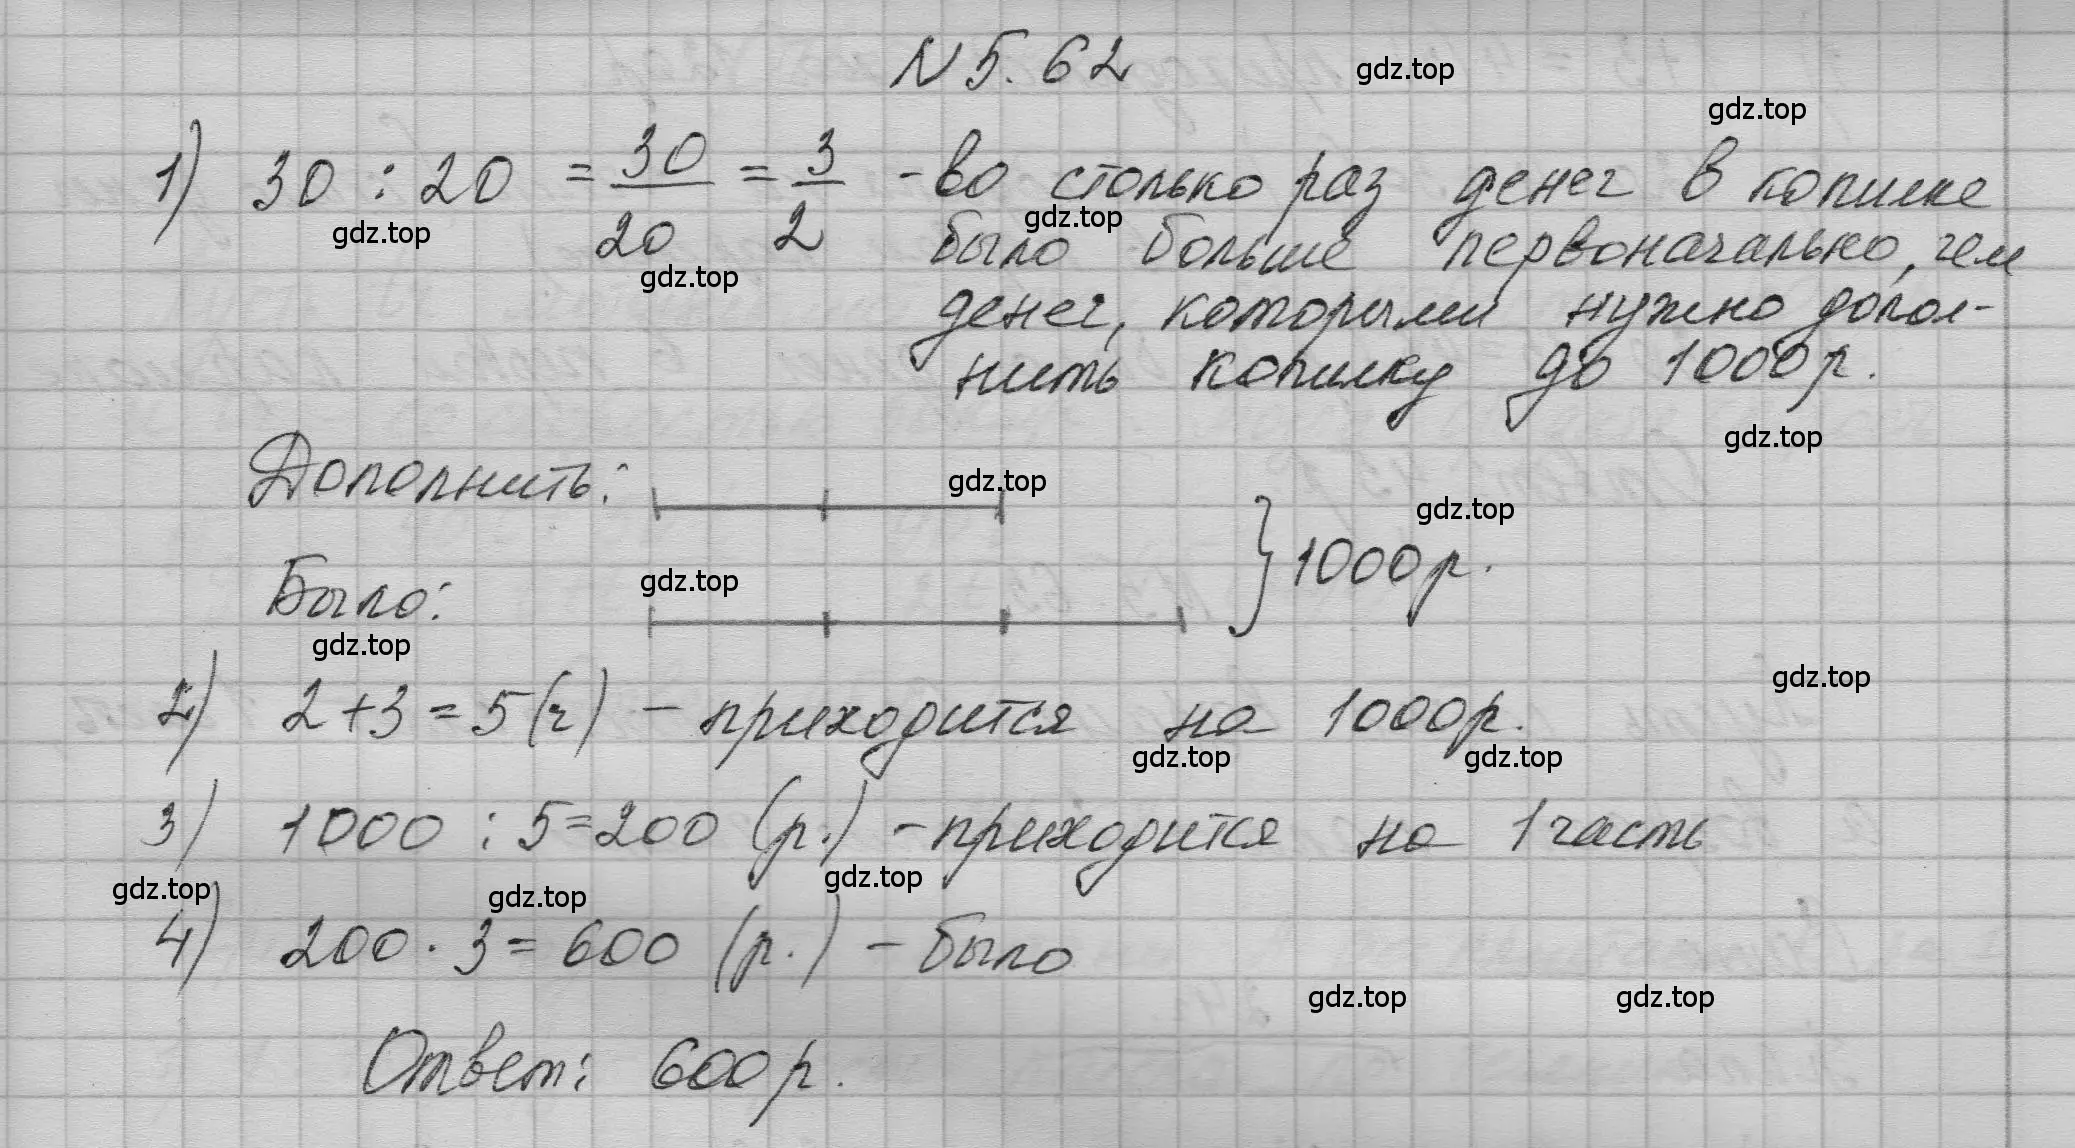 N 5.62
gdz.top
gdz.top
1) 30 : 20 = 30/20 = 3/2 - во столько раз денег в копилке
gdz.top
gdz.top
было больше первоначально, чем
gdz.top
денег, которыми нужно допол-
нить копилку до 1000 р.
gdz.top
Дополнить:
gdz.top
gdz.top
Было:
gdz.top
} 1000 р.
gdz.top
gdz.top
2) 2 + 3 = 5 (ч) - приходится на 1000 р.
gdz.top
gdz.top
3) 1000 : 5 = 200 (р.) - приходится на 1 часть
gdz.top
gdz.top
gdz.top
4) 200 · 3 = 600 (р.) - было
gdz.top
gdz.top
Ответ: 600 р.